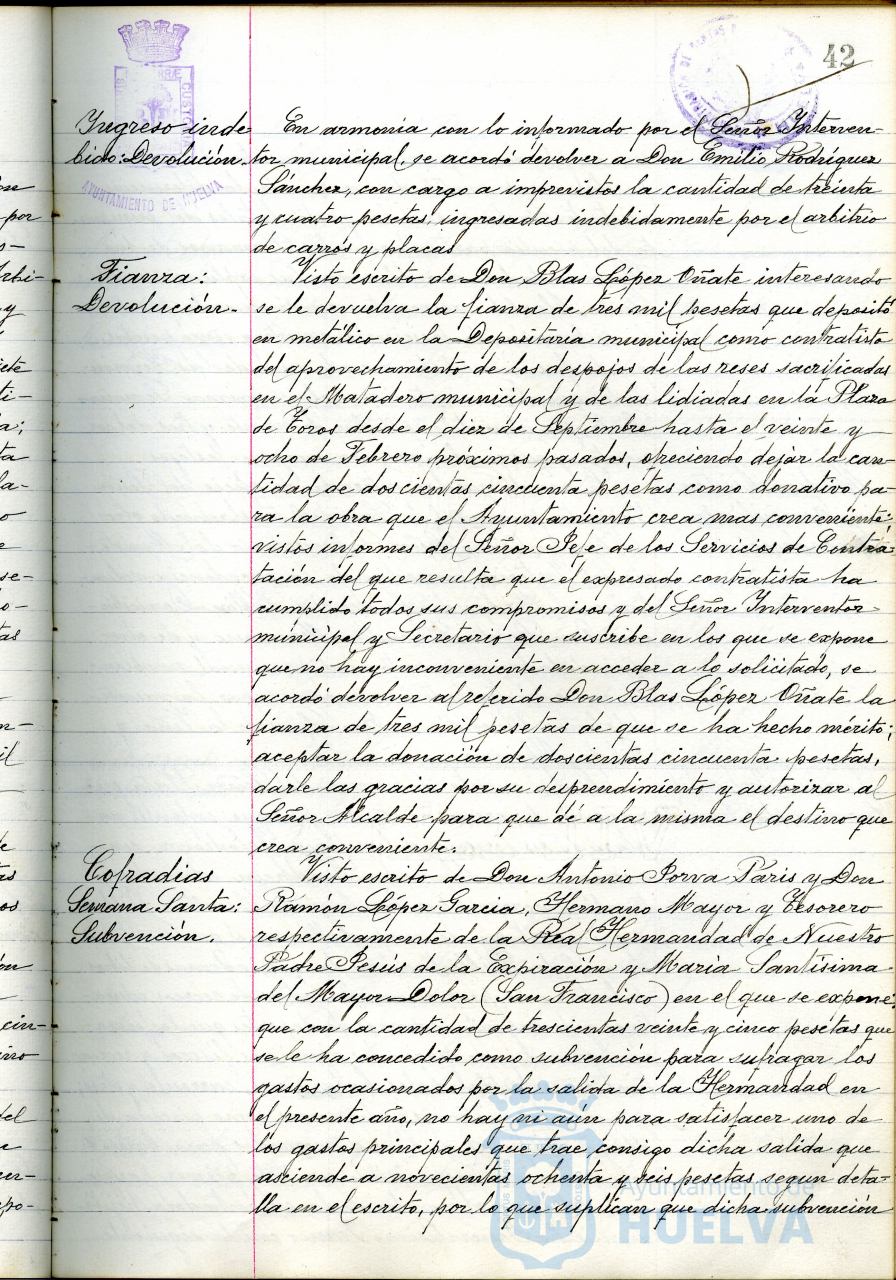 42
AYUNTAMIENTO DE HUELVA
Ingreso inde
bido: Devolución.
En armonía con lo informado por el Señor Interven-
tor municipal, se acordó devolver a Don Emilio Rodríguez
Sánchez, con cargo a imprevistos la cantidad de treinta
y cuatro pesetas, ingresadas indebidamente por el arbitrio
de carros y placas
Fianza:
Devolución.
Visto escrito de Don Blas López Oñate interesando
se le devuelva la fianza de tres mil pesetas que depositó
en metálico en la Depositaría municipal como contratista
del aprovechamiento de los despojos de las reses sacrificadas
en el Matadero municipal y de las lidiadas en la Plaza
de Toros desde el diez de Septiembre hasta el veinte y
ocho de Febrero próximos pasados, ofreciendo dejar la can-
tidad de doscientas cincuenta pesetas como donativo pa-
ra la obra que el Ayuntamiento crea mas conveniente;
vistos informes del Señor Jefe de los Servicios de Contra
tación del que resulta que el expresado contratista ha
cumplido todos sus compromisos y del Señor Interventor
municipal y Secretario que suscribe en los que se expone
que no hay inconveniente en acceder a lo solicitado, se
acordó devolver al referido Don Blas López Oñate la
fianza de tres mil pesetas de que se ha hecho mérito;
aceptar la donación de doscientas cincuenta pesetas,
darle las gracias por su desprendimiento y autorizar al
Señor Alcalde para que dé a la misma el destino que
crea conveniente.
Cofradias
Semana Santa:
Subvención.
Visto escrito de Don Antonio Porva Paris y Don
Ramón López Garcia, Hermano Mayor y Tesorero
respectivamente de la Real Hermandad de Nuestro
Padre Jesús de la Expiración y Maria Santísima
del Mayor Dolor (San Francisco) en el que se expone
que con la cantidad de trescientas veinte y cinco pesetas que
se le ha concedido como subvención para sufragar los
gastos ocasionados por la salida de la Hermandad en
el presente año, no hay ni aún para satisfacer uno de
los gastos principales que trae consigo dicha salida que
asciende a novecientas ochenta y seis pesetas segun deta-
lla en el escrito, por lo que suplican que dicha subvención
Ayuntamiento de
HUELVA